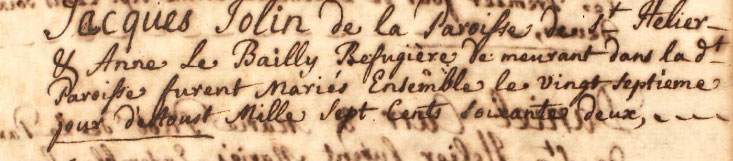 Jacques Jolin de la Paroisse de St Helier
& Anne Le Bailly Refugière demeurant dans la dt
Paroisse furent Mariés Ensemble le vingt septieme
jour d'Aoust Mille Sept Cents soixante deux,